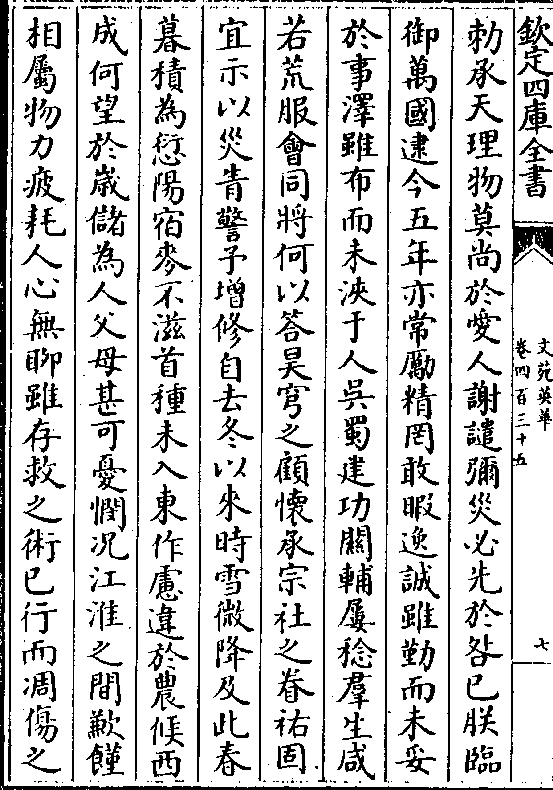 欽定四庫全書
文苑英華
卷四百三十五
七
勅承天理物莫尚於愛人謝譴彌災必先於咎已朕臨
御萬國逮今五年亦常勵精罔敢暇逸誠雖勤而未妥
於事澤雖布而未浹于人吳蜀建功關輔屢稔羣生咸
若荒服會同將何以答昊穹之顧懷承宗社之眷祐固
宜示以災眚警予增修自去冬以來時雪微降及此春
暮積為愆陽宿麥不滋首種未入東作慮違於農候西
成何望於歲儲為人父母甚可憂憫况江淮之間歉饉
相屬物力疲耗人心無聊雖存救之術已行而凋傷之